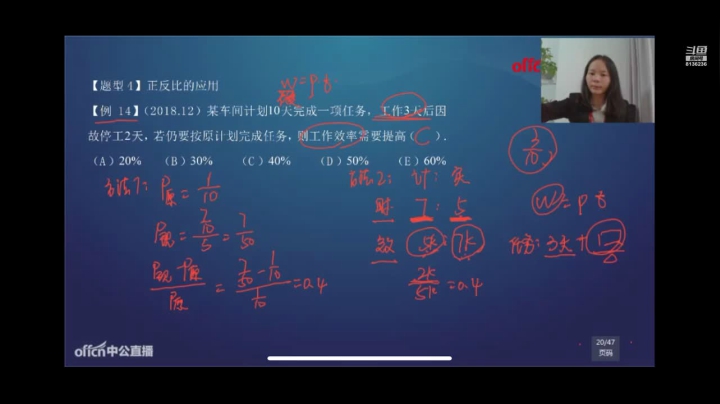 斗鱼
8136236
offcn
【题型 4】正反比的应用
W=pt
【例 14】（2018.12）某车间计划10天完成一项任务，工作3天后因
故停工2天，若仍要按原计划完成任务，则工作效率需要提高（C）.
（A）20% （B）30% （C）40% （D）50% （E）60%
方法1: P原=1/10
P现=7/10/5=7/50
P现-P原/P原=7/50-1/10/1/10=0.4
方法2: 计:实
时 7:5
效 5k:7k
2k/5k=0.4
W=pt
3天+
offcn中公直播
20/47
页码